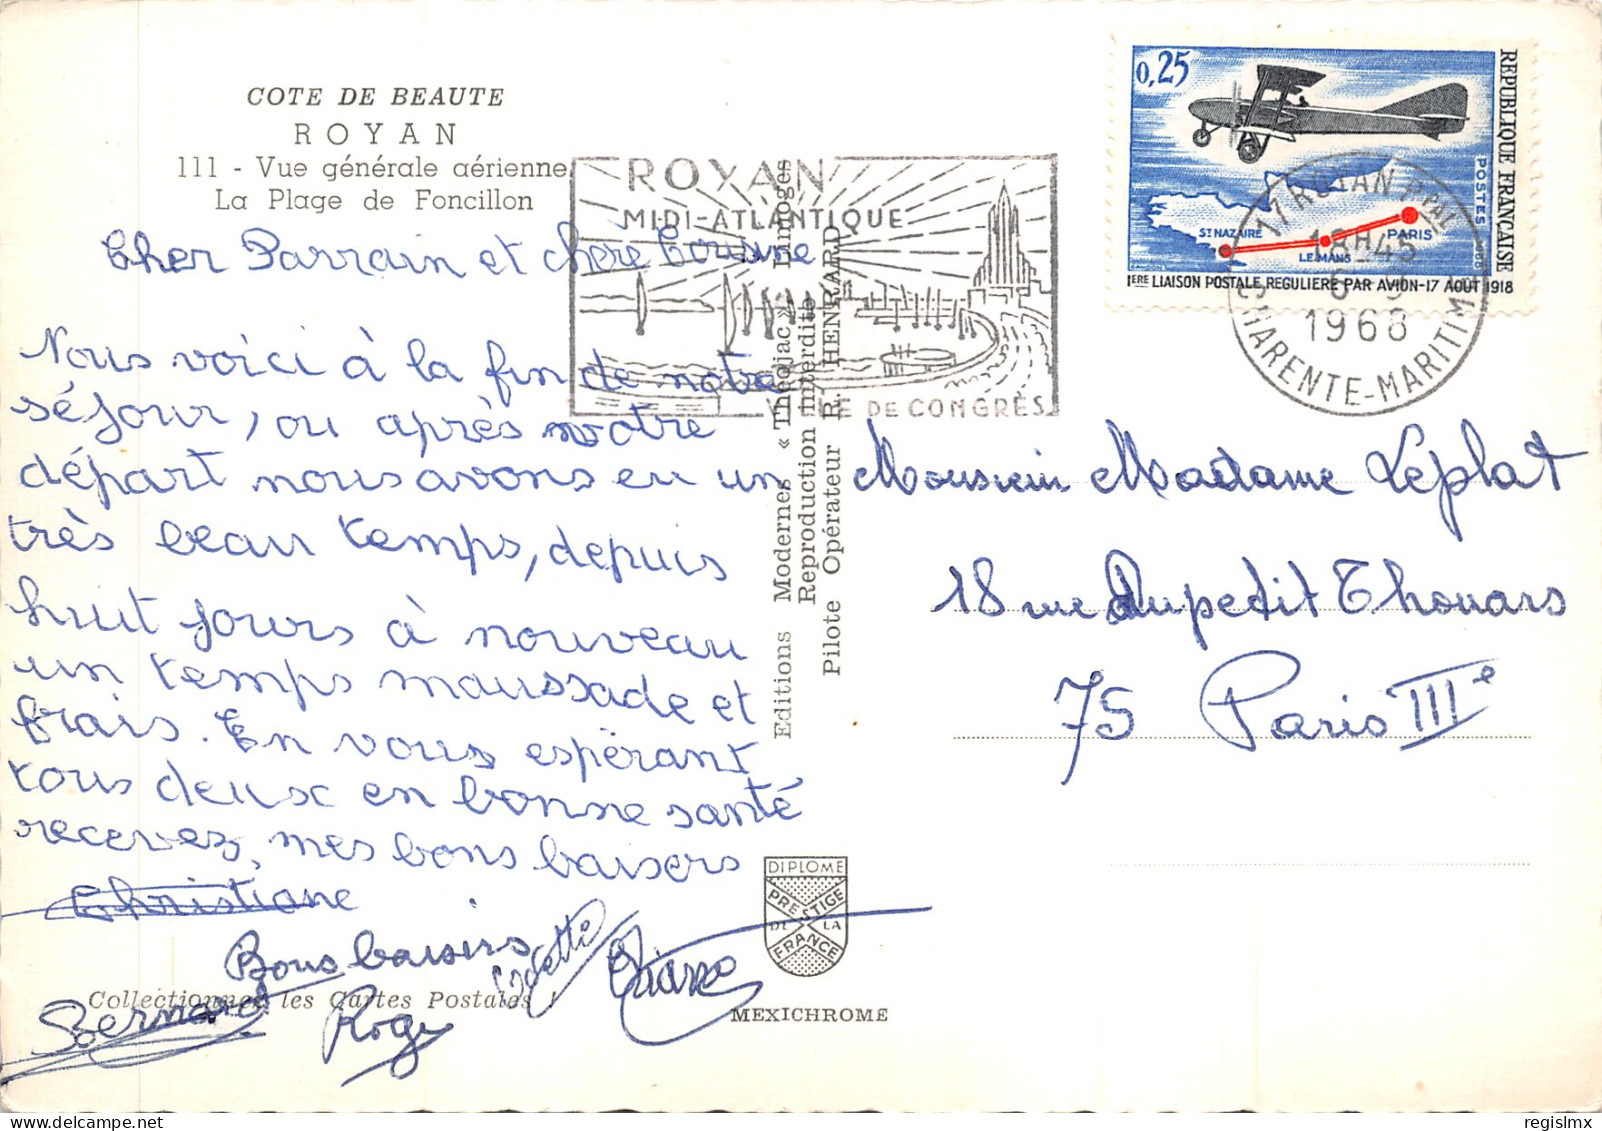 COTE DE BEAUTE
ROYAN
111 - Vue générale aérienne
La Plage de Foncillon
Cher Parrain et chère Cousine
Nous voici à la fin de notre
séjour, ou après votre
départ nous avons eu un
très beau temps, depuis
huit jours à nouveau
un temps maussade et
frais. En vous espérant
tous deux en bonne santé
recevez, mes bons baisers
Christiane
Bons baisers
Odette
Bernard
Roger
Collectionnez les Cartes Postales !
Editions Modernes « Théojac » Limoges
Reproduction interdite
Pilote Opérateur R. HENRARD
DIPLOME
PRESTIGE
DE LA
FRANCE
MEXICHROME
ROYAN
MIDI-ATLANTIQUE
VILLE DE CONGRÈS
0,25
REPUBLIQUE FRANÇAISE
POSTES
ST NAZAIRE
LE MANS
PARIS
1ERE LIAISON POSTALE REGULIERE PAR AVION-17 AOUT 1918
17 ROYAN PPAL
18H45
1968
CHARENTE-MARITIME
Monsieur Madame Leplat
18 rue Dupetit Thouars
75 Paris IIIe
regislmx